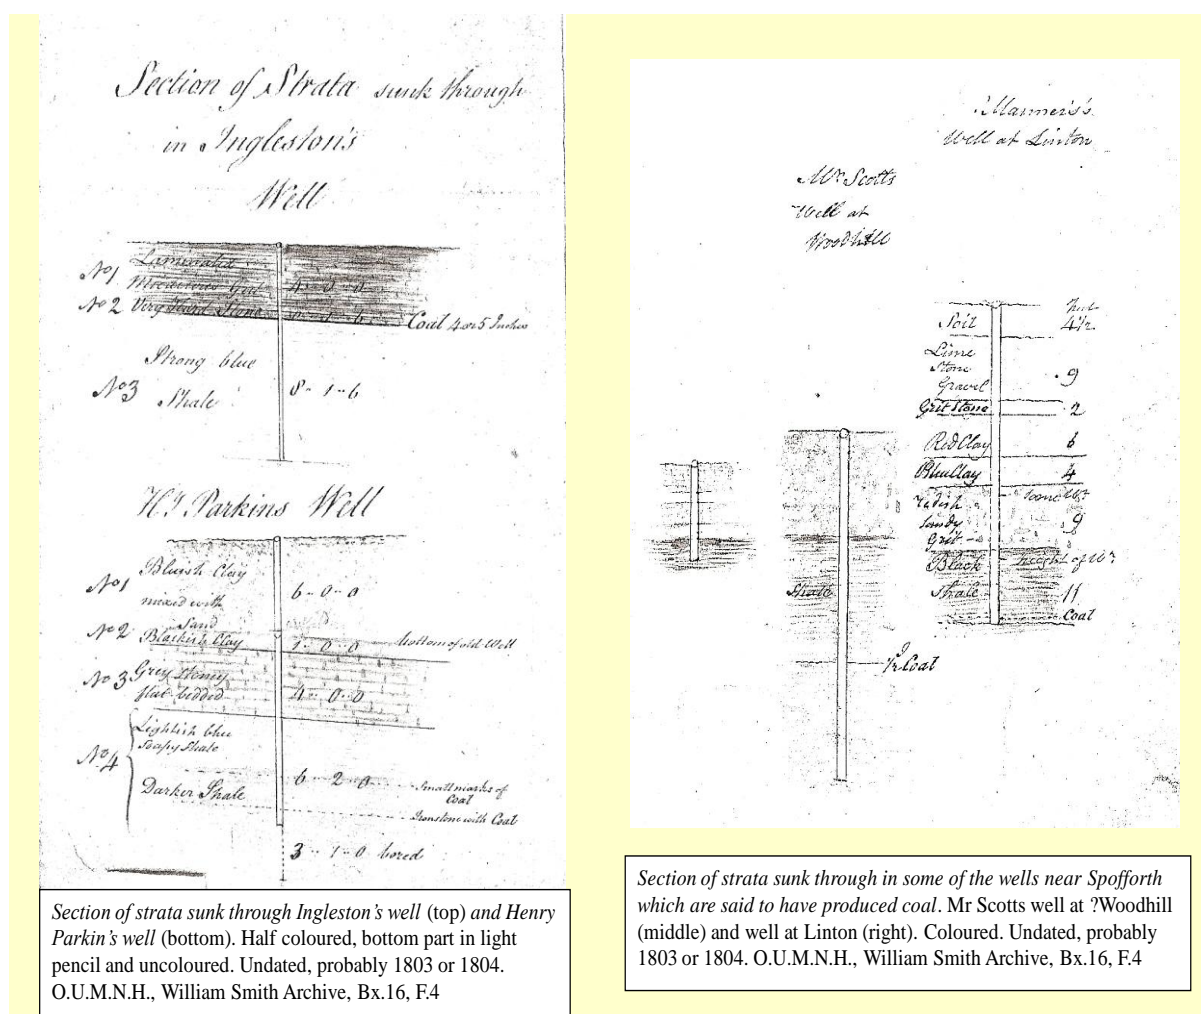 Section of Strata sunk through
in Ingleston's
Well
No 1 Laminated
4 - 0 - 0
No 2 Very Hard Stone
Coal 4 or 5 Inches
No 3 Strong blue
Shale
8 - 1 - 6
Hy Parkins Well
No 1 Bluish Clay
mixed with
Sand
6 - 0 - 0
No 2 Blackish Clay
1 - 0 - 0
bottom of old Well
No 3 Grey Stoney
flat bedded
4 - 0 - 0
No 4 Lightish blue
Soapy Shale
Darker Shale
6 - 2 - 0
Small marks of
Coal
Ironstone with Coal
3 - 1 - 0 bored
Section of strata sunk through Ingleston's well (top) and Henry
Parkin's well (bottom). Half coloured, bottom part in light
pencil and uncoloured. Undated, probably 1803 or 1804.
O.U.M.N.H., William Smith Archive, Bx.16, F.4
Mr Scotts
Well at
Woodhill
Shale
Coal
Manners's
Well at Linton
Feet
Soil 4½
Lime
Stone
Gravel 9
Grit Stone 2
Red Clay 6
Blue Clay 4
Redish
Sandy
Grit 9
Black
Shale 11
height of Wr
Coal
Section of strata sunk through in some of the wells near Spofforth
which are said to have produced coal. Mr Scotts well at ?Woodhill
(middle) and well at Linton (right). Coloured. Undated, probably
1803 or 1804. O.U.M.N.H., William Smith Archive, Bx.16, F.4